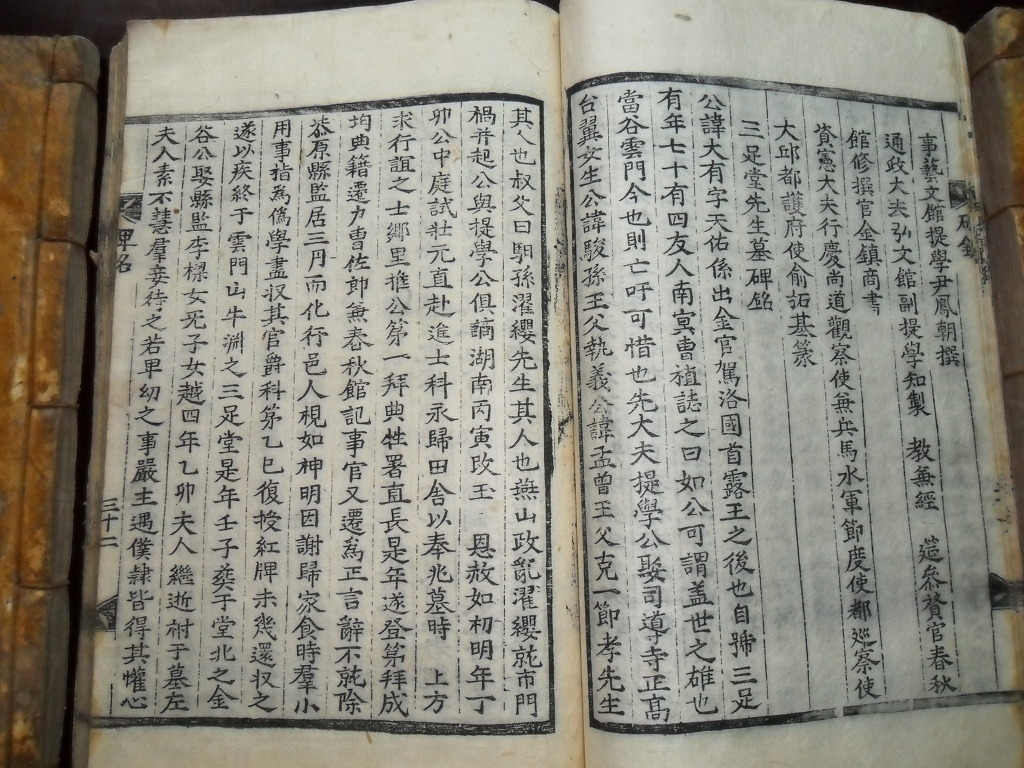 事藝文館提學尹鳳朝撰
通政大夫弘文館副提學知製 教兼經 筵參贊官春秋
館修撰官金鎭商書
資憲大夫行慶尚道觀察使兼兵馬水軍節度使都廵察使
大邱都護府使俞拓基篆
三足堂先生墓碑銘
公諱大有字天佑係出金官駕洛國首露王之後也自號三足
有年七十有四友人南冥曺植誌之曰如公可謂盖世之雄也
當谷雲門今也則亡吁可惜也先大夫提學公娶司導寺正高
台翼女生公諱駿孫王父執義公諱孟曾王父克一節孝先生
其人也叔父曰馹孫濯纓先生其人也燕山政亂濯纓就市門
禍并起公與提學公俱謫湖南丙寅改玉 恩赦如初明年丁
卯公中庭試壯元直赴進士科永歸田舍以奉兆墓時 上方
求行誼之士鄉里推公第一拜典牲署直長是年遂登第拜成
均典籍遷力曺佐郎無春秋館記事官又遷爲正言辭不就除
柒原縣監居三月而化行邑人視如神明因謝歸家食時羣小
用事指爲僞學盡收其官爵科第乙巳復授紅牌未幾還收之
遂以疾終于雲門山牛淵之三足堂是年壬子葬于堂北之金
谷公娶縣監李樑女旡子女越四年乙卯夫人繼逝祔于墓左
夫人素不慧羣妾待之若卑幼之事嚴主遇僕隸皆得其懽心
碑銘
三十二